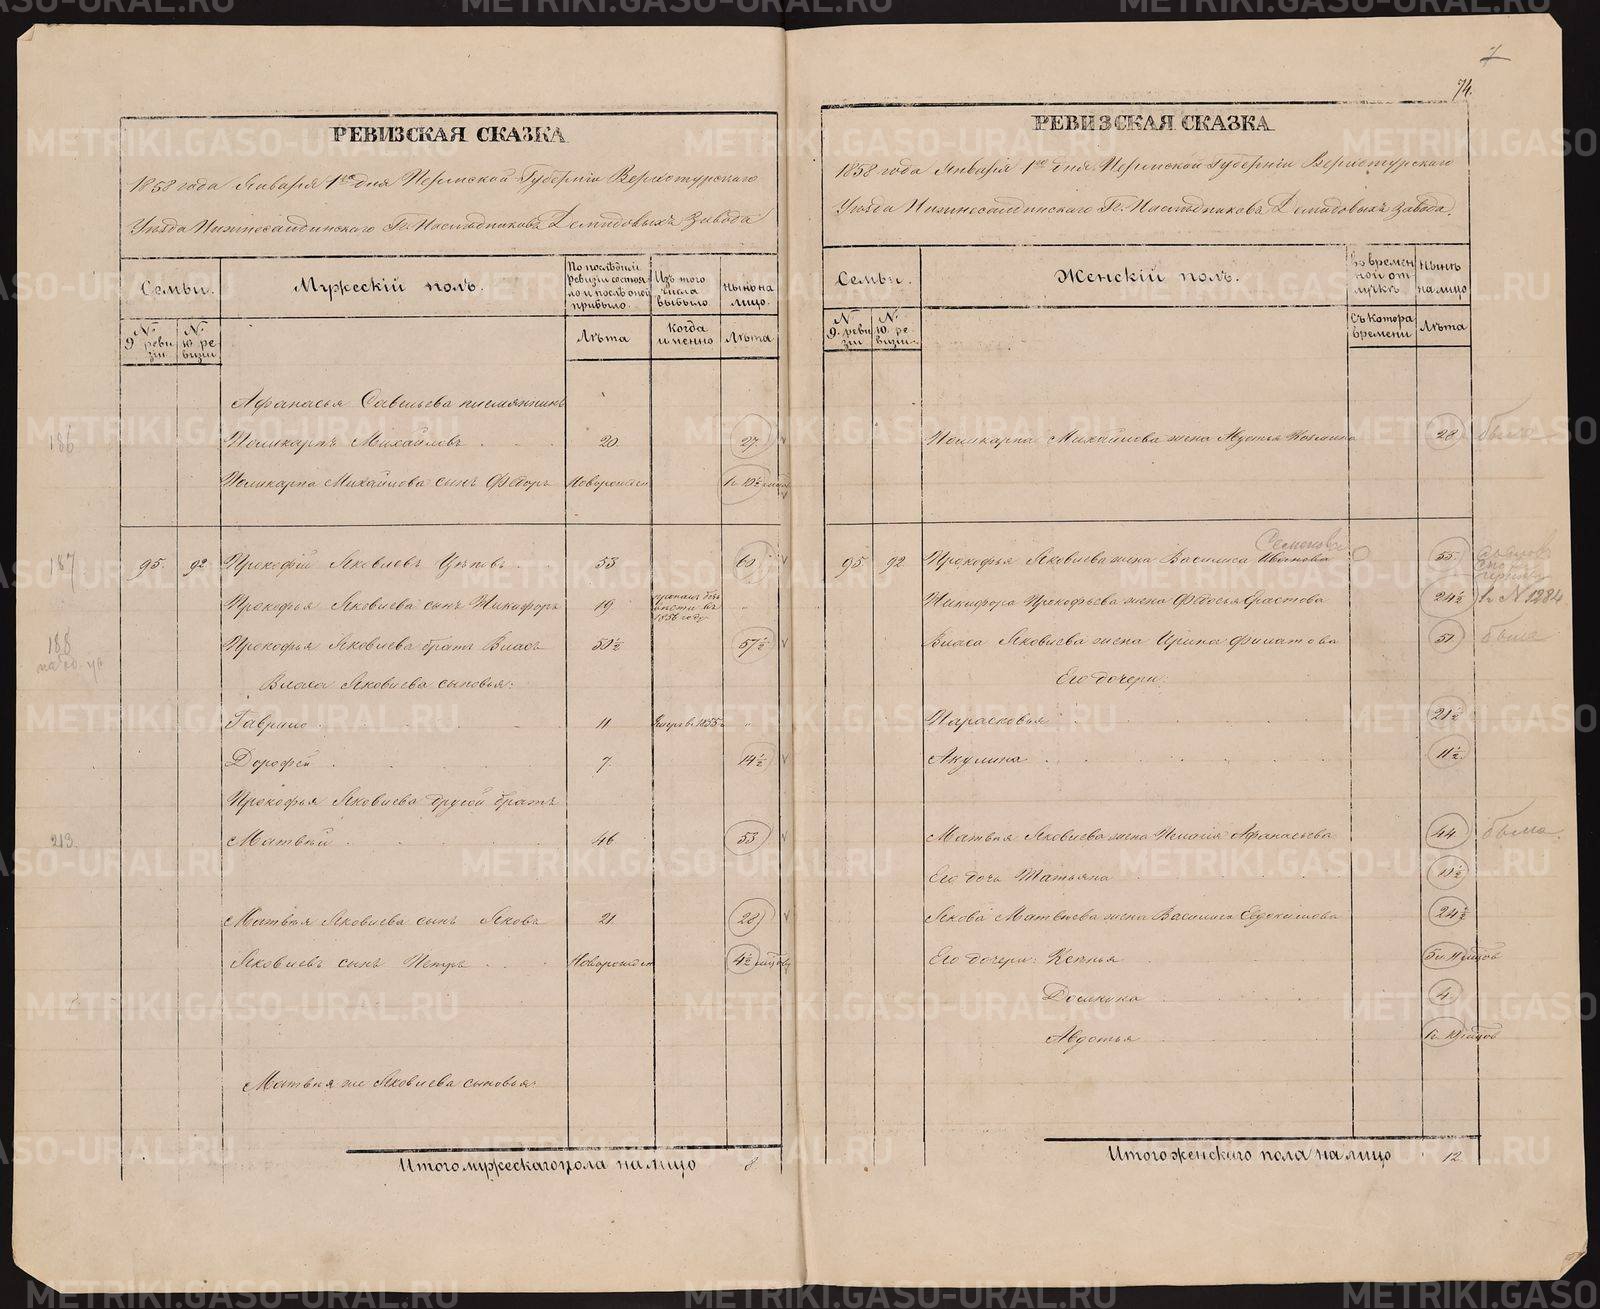 7
74.
РЕВИЗСКАЯ СКАЗКА
1858 года Января 1го дня Пермской Губерніи Верхотурскаго
Уѣзда Нижнесалдинскаго Гг. Наслѣдниковъ Демидовыхъ Завода
Семьи.
Мужескій полъ.
По послѣдней ревизіи состояло и послѣ оной прибыло.
Изъ того числа выбыло
Нынѣ на лицо.
№ 9й ревизіи
№ 10 ревизіи
Лѣта
Когда именно
Лѣта
Афанасья Савельева племянникъ
186 Поликарпъ Михайловъ 20. 27
Поликарпа Михайлова сынъ Ѳедоръ Новорожден
187 95. 92 Прокофій Яковлевъ 53 60
Прокофья Яковлева сынъ Никифоръ 19 1856 году "
188 Прокофья Яковлева братъ Власъ 50½ 57½
Власа Яковлева сыновья:
Гаврило 11 Умеръ в 1855 "
Дорофей 7. 14½
Прокофья Яковлева другой братъ
213 Матвѣй 46 53
Матвѣя Яковлева сынъ Яковъ 21 28
Яковлевъ сынъ Петръ Новорожден 4½
Матвѣя же Яковлева сыновья:
Итого мужескаго пола на лицо 8
РЕВИЗСКАЯ СКАЗКА
1858 года Января 1го дня Пермской Губерніи Верхотурскаго
Уѣзда Нижнесалдинскаго Гг. Наслѣдниковъ Демидовыхъ Завода.
Семьи.
Женскій полъ.
Въ временной отлучкѣ
Нынѣ на лицо
№ 9. ревизіи
№ 10. ревизіи
Съ котора времени
Лѣта
Поликарпа Михайлова жена Авдотья Козмина 28 была
Семенова
95 92 Прокофья Яковлева жена Василиса Иванова 55
Никифора Прокофьева жена Ѳедосья 24½ № 1284
Власа Яковлева жена Ирина Филатова 51 была
Его дочери:
Парасковья 21½
Акулина 11½
Матвѣя Яковлева жена Пелагія Афанасьева 44 была
Его дочь Татьяна
Якова Матвѣева жена Василиса Евдокимова 24½
Его дочери: Ксенья
Домника 4.
Авдотья
Итого женскаго пола на лицо 12.
METRIKI.GASO-URAL.RU